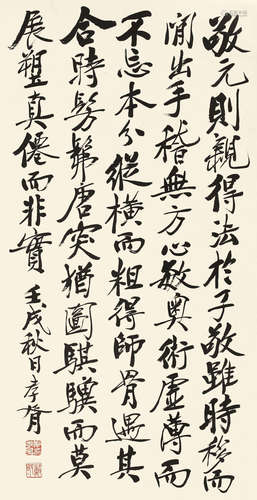 敬元則親得法於子敬雖時移而
間出手稽無方心敏奧術虛薄而
不忘本分縱橫而粗得師骨遇其
合時髣髴唐突猶圖騏驥而莫
展塑真僊而非實 壬戌秋日孝胥